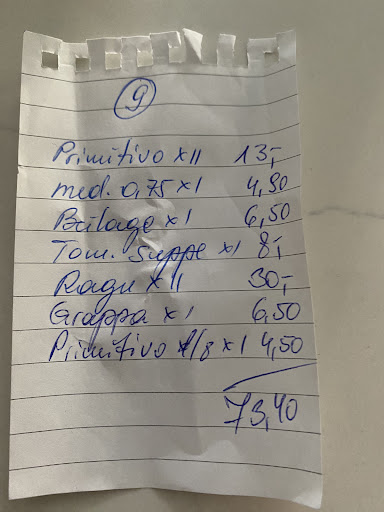 9
Primitivo x II 13,-
med. 0,75 x I 4,90
Bulage x I 6,50
Tom. Suppe x I 8,-
Ragu x II 30,-
Grappa x I 6,50
Primitivo 1/8 x I 4,50
73,40